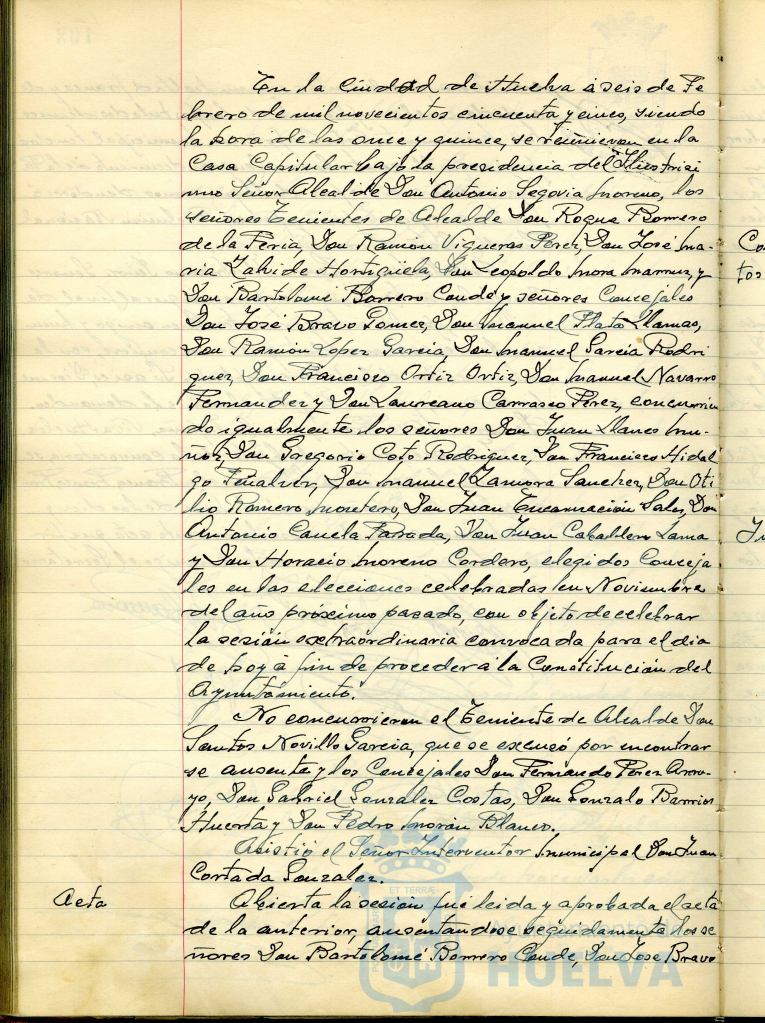 En la Ciudad de Huelva á seis de Fe
brero de mil novecientos cincuenta y cinco, siendo
la hora de las once y quince, se reúnieron en la
Casa Capitular bajo la presidencia del Ilustrisi
mo Señor Alcalde Don Antonio Segovia Moreno, los
señores Tenientes de Alcalde Don Roque Borrero
de la Feria, Don Ramón Vigueras Perez, Don José Ma-
ria Zalvide Hortigüela, Don Leopoldo Mora y
Don Bartolomé Borrero Conde y señores Concejales
Don José Bravo Gomez, Don Manuel Plata Llamas,
Don Ramón Lopez Garcia, Don Manuel Garcia Rodri
guez, Don Francisco Ortiz Ortiz, Don Manuel Navarro
Fernandez y Don Laureano Carrasco Perez, concurrien
do igualmente los señores Don Juan Llanes Mu-
ñoz, Don Gregorio Coto Rodriguez, Don Francisco Hidal
go Peñalver, Don Manuel Zamora Sanchez, Don Oti
lio Romero Montero, Don Juan Encarnación Sales, Don
Antonio Canela Parrada, Don Juan Caballero Lama
y Don Horacio Moreno Cordero, elegidos Conceja
les en las elecciones celebradas en Noviembre
del año próximo pasado, con objeto de celebrar
la sesión extraordinaria convocada para el dia
de hoy á fin de proceder á la Constitución del
Ayuntamiento.
No concurrieron el Teniente de Alcalde Don
Santos Novillo Garcia, que se excusó por encontrar
se ausente y los Concejales Don Fernando Perez Arro-
yo, Don Gabriel Gonzalez Costas, Don Gonzalo Barrios
Huerta y Don Pedro Morón Blanco.
Asistió el Señor Interventor Municipal Don Juan
Cortada Gonzalez.
Acta Abierta la sesión fué leida y aprobada el acta
de la anterior, ausentandose seguidamente los se
ñores Don Bartolomé Borrero Conde, Don Jose Bravo
HUELVA